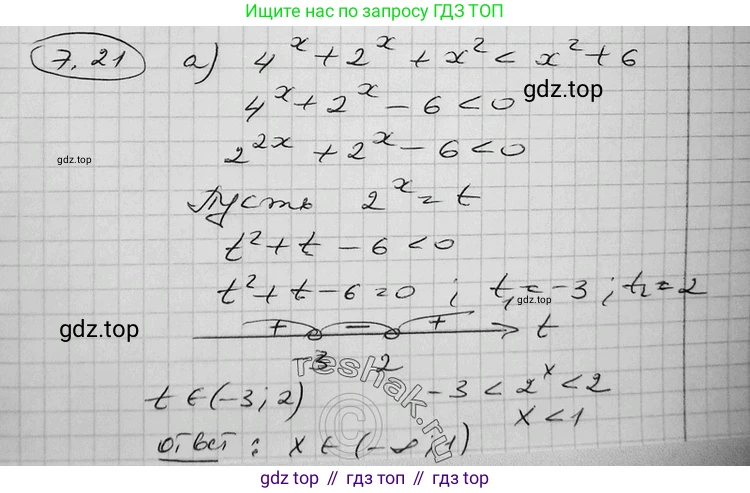 Ищите нас по запросу ГДЗ ТОП
7.21 а) 4^x + 2^x + x² < x² + 6
gdz.top
4^x + 2^x - 6 < 0
gdz.top
2^{2x} + 2^x - 6 < 0
Пусть 2^x = t
t² + t - 6 < 0
t² + t - 6 = 0 ; t₁ = -3 ; t₂ = 2
gdz.top
gdz.top
+ - + t
-3 2
reshak.ru
t ∈ (-3; 2) -3 < 2^x < 2
x < 1
ответ: x ∈ (-∞; 1)
gdz top // гдз топ // gdz.top // гдз топ